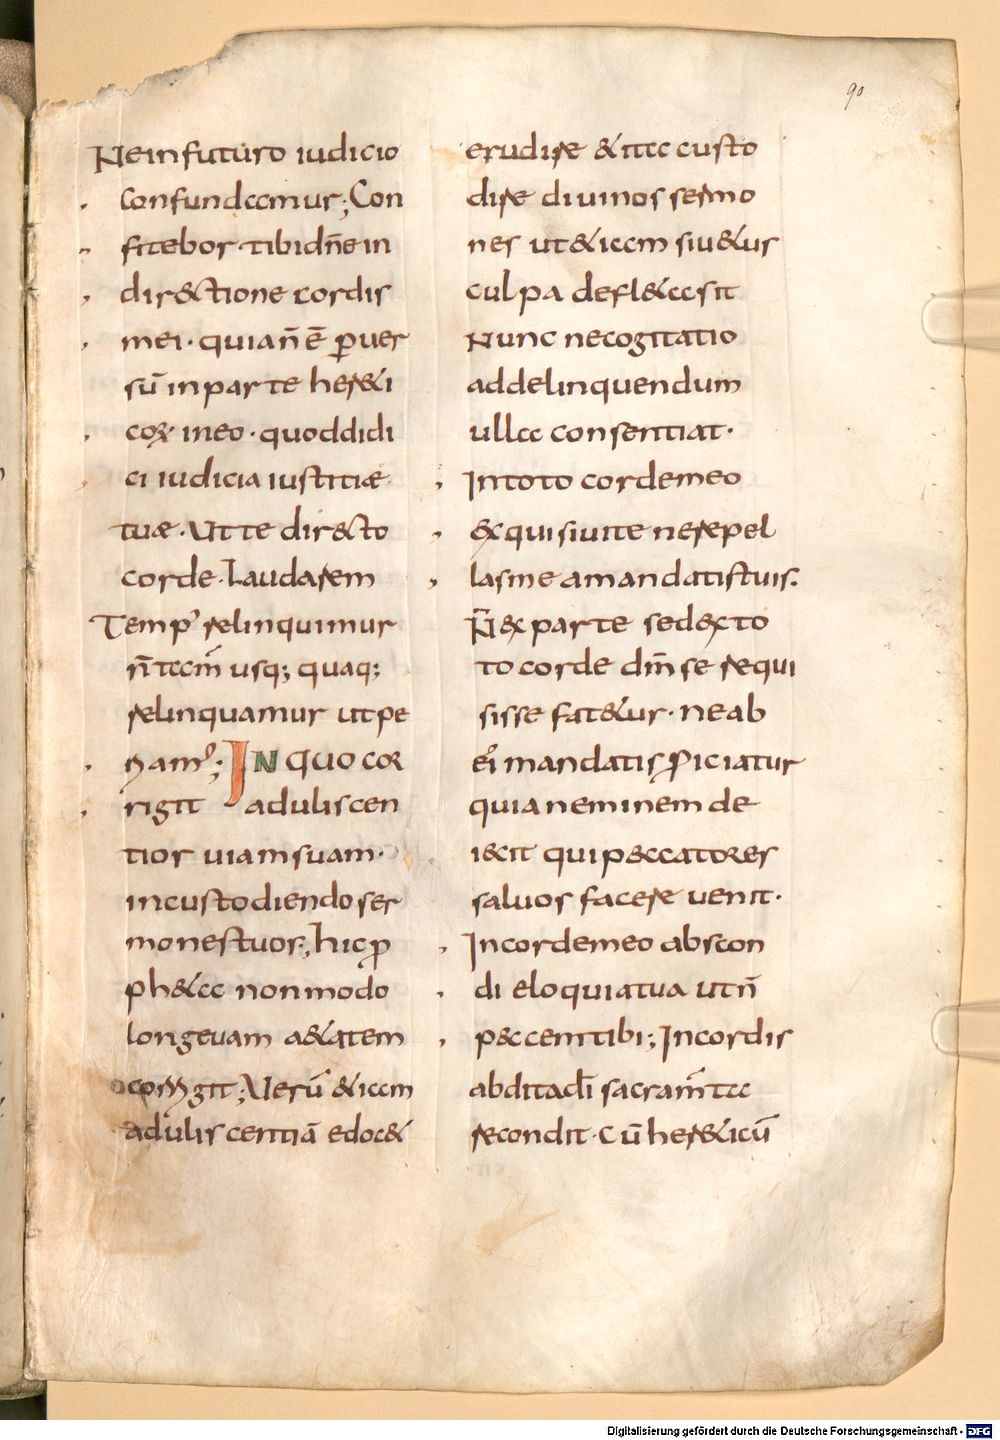 90
Ne in futuro iudicio
confundamur; Con
fitebor tibi dn̄e in
directione cordis
mei. quia n̄ ē ꝑuer
sū in parte hereti
coꝝ in eo. quod didi
ci iudicia iustitiæ
tuæ. Ut te directo
corde. Laudarem
Temp᾽ relinquimur
n̄ tam̄ usq; quaq;
relinquamur ut pe
ream᾽; IN QUO COR
rigit aduliscen
tior uiam suam.
in custodiendo ser
mones tuos; hic ꝓ
pheta non modo
longeuam aetatem
corrigit; Uerū etiam
aduliscentiā edocet
erudire & ita custo
dire diuinos sermo
nes ut etiam si uetur
culpa deflecti sit
Nunc ne cogitatio
ad delinquendum
ulla consentiat.
In toto corde meo
exquisiui te ne repel
las me a mandatis tuis.
N̄ ex parte sed ex to
to corde dn̄m se requi
sisse fatetur. ne ab
ei᾽ mandatis ꝓiciatur
quia neminem de
iecit qui peccatores
saluos facere uenit.
In corde meo abscon
di eloquia tua ut n̄
peccem tibi; In cordis
abdita dī sacram̄ta
recondit. Cū hereticū
Digitalisierung gefördert durch die Deutsche Forschungsgemeinschaft - DFG